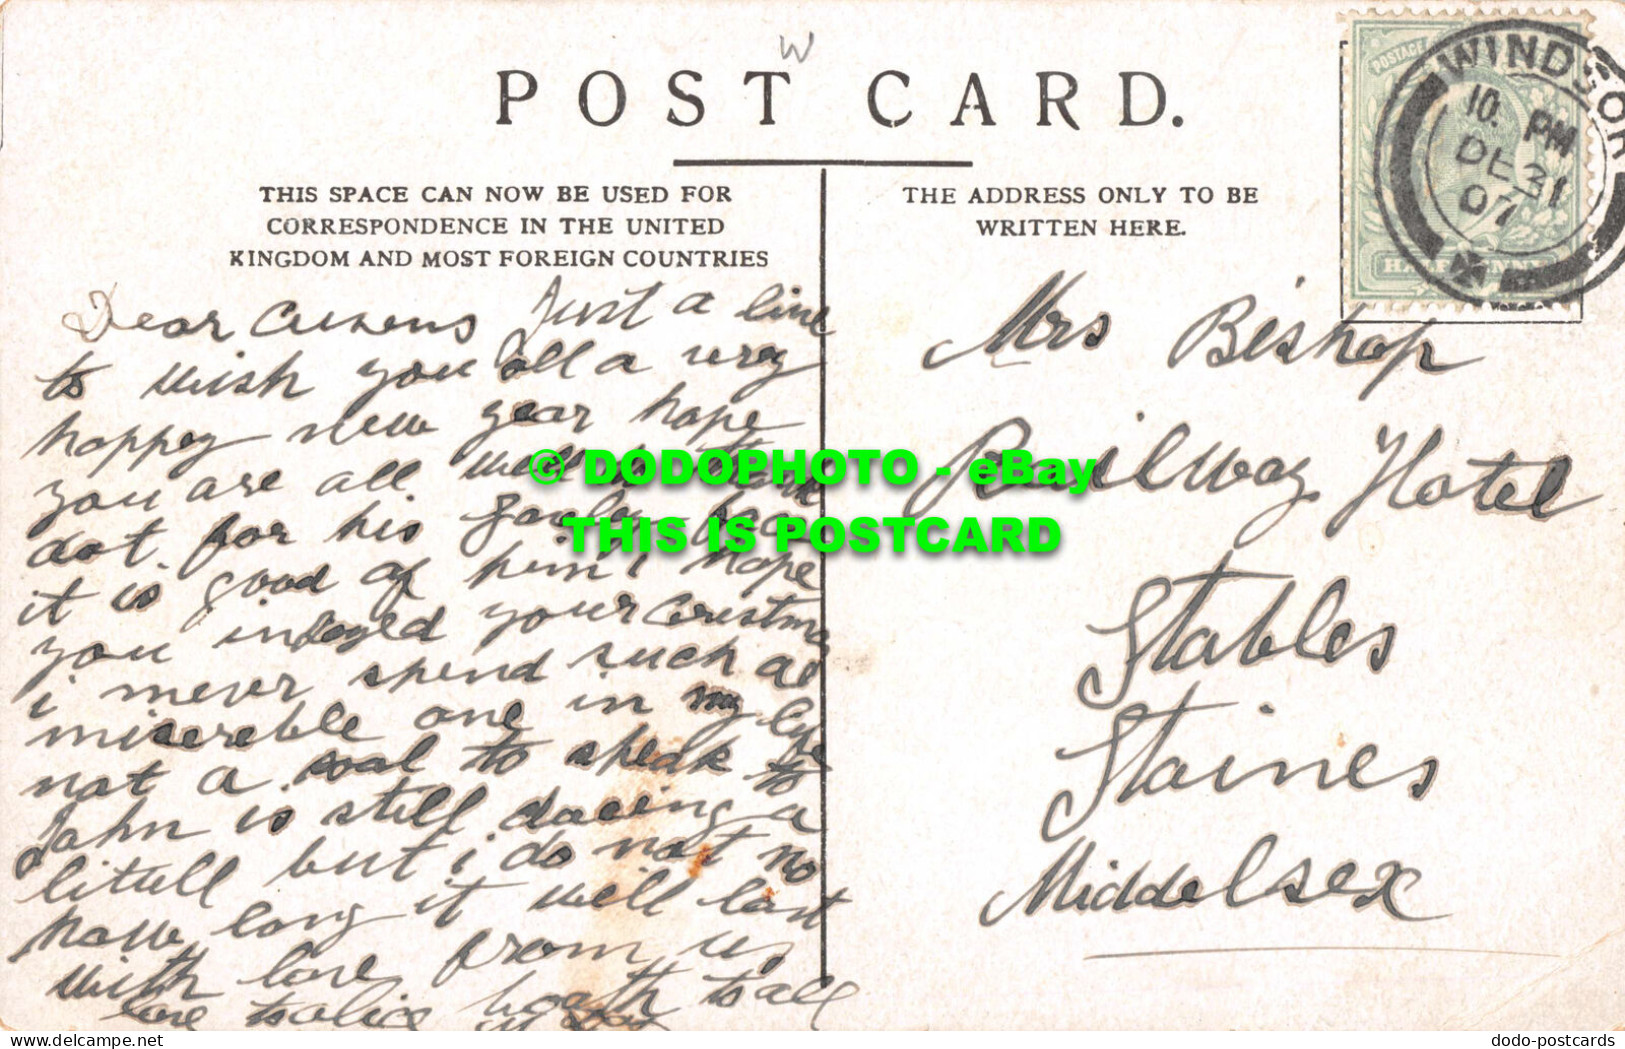 W
POST CARD.
THIS SPACE CAN NOW BE USED FOR
CORRESPONDENCE IN THE UNITED
KINGDOM AND MOST FOREIGN COUNTRIES
THE ADDRESS ONLY TO BE
WRITTEN HERE.
POSTAGE
WINDSOR
10. PM
DE 31
07
Dear Just a line
to wish you all a very
happey new year hope
you are all well
dot. for his
it is good of him i hope
you your
i never spend such a
miserable one in my
not a soal to speak to
John is still doeing a
litull but i do not no
how long it will last
with love from us
love to alice to all
Mrs Bishop
Railway Hotel
Stables
Staines
Middelsex
© DODOPHOTO - eBay
THIS IS POSTCARD
www.delcampe.net
dodo-postcards